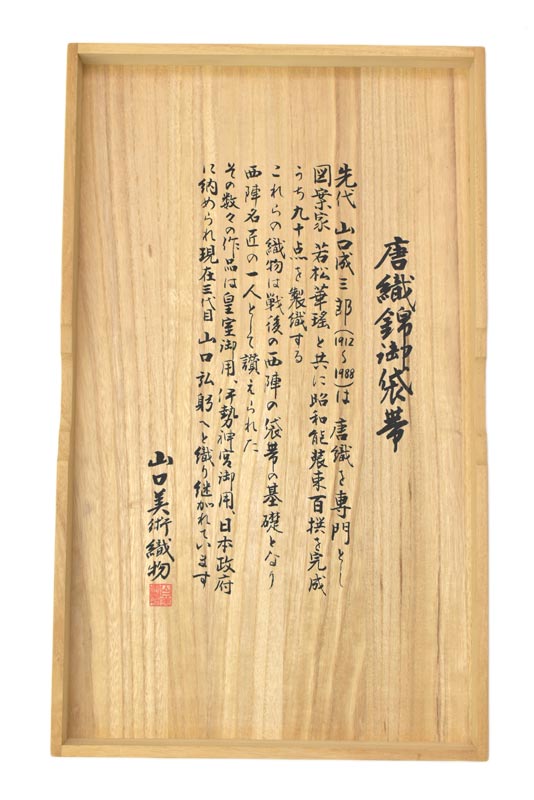 唐織錦御袋帯
先代 山口成三郎(1912〜1988)は 唐織を専門とし
図案家 若松華瑤と共に昭和能装束百撰を完成
うち九十点を製織する
これらの織物は戦後の西陣の袋帯の基礎となり
西陣名匠の一人として讃えられた
その数々の作品は皇室御用、伊勢神宮御用、日本政府
に納められ現在三代目 山口弘躬へと織り継がれています
山口美術織物